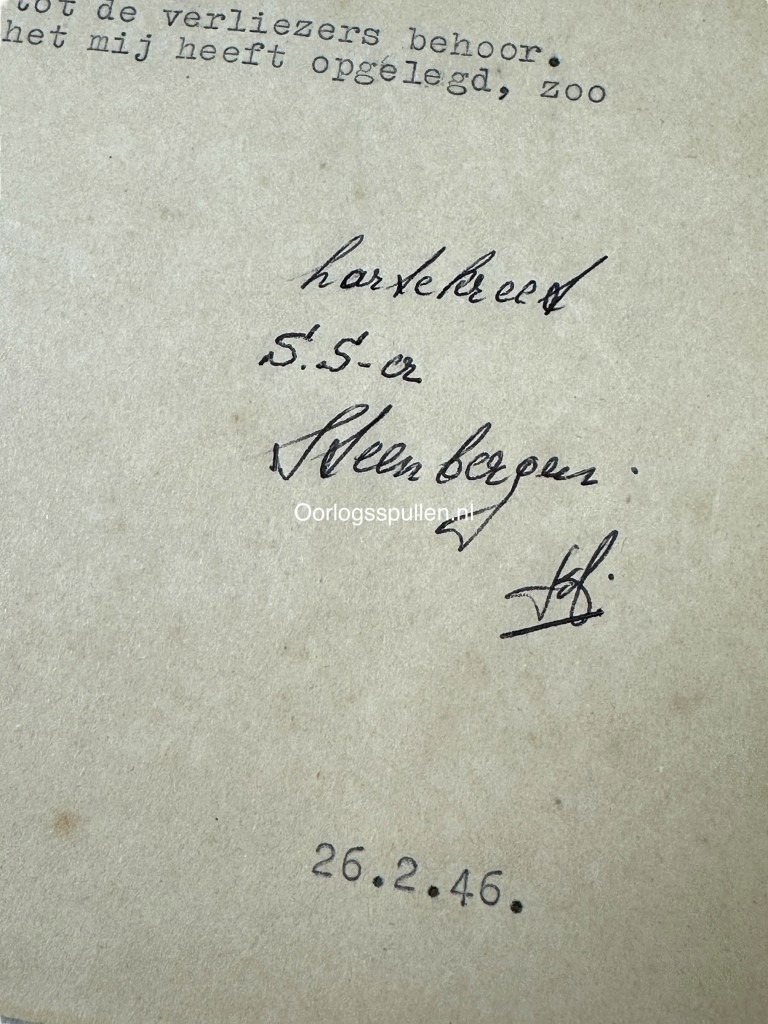 tot de verliezers behoor.
het mij heeft opgelegd, zoo
hartekreet
S.S-er
Steenbergen.
Oorlogsspullen.nl
26.2.46.